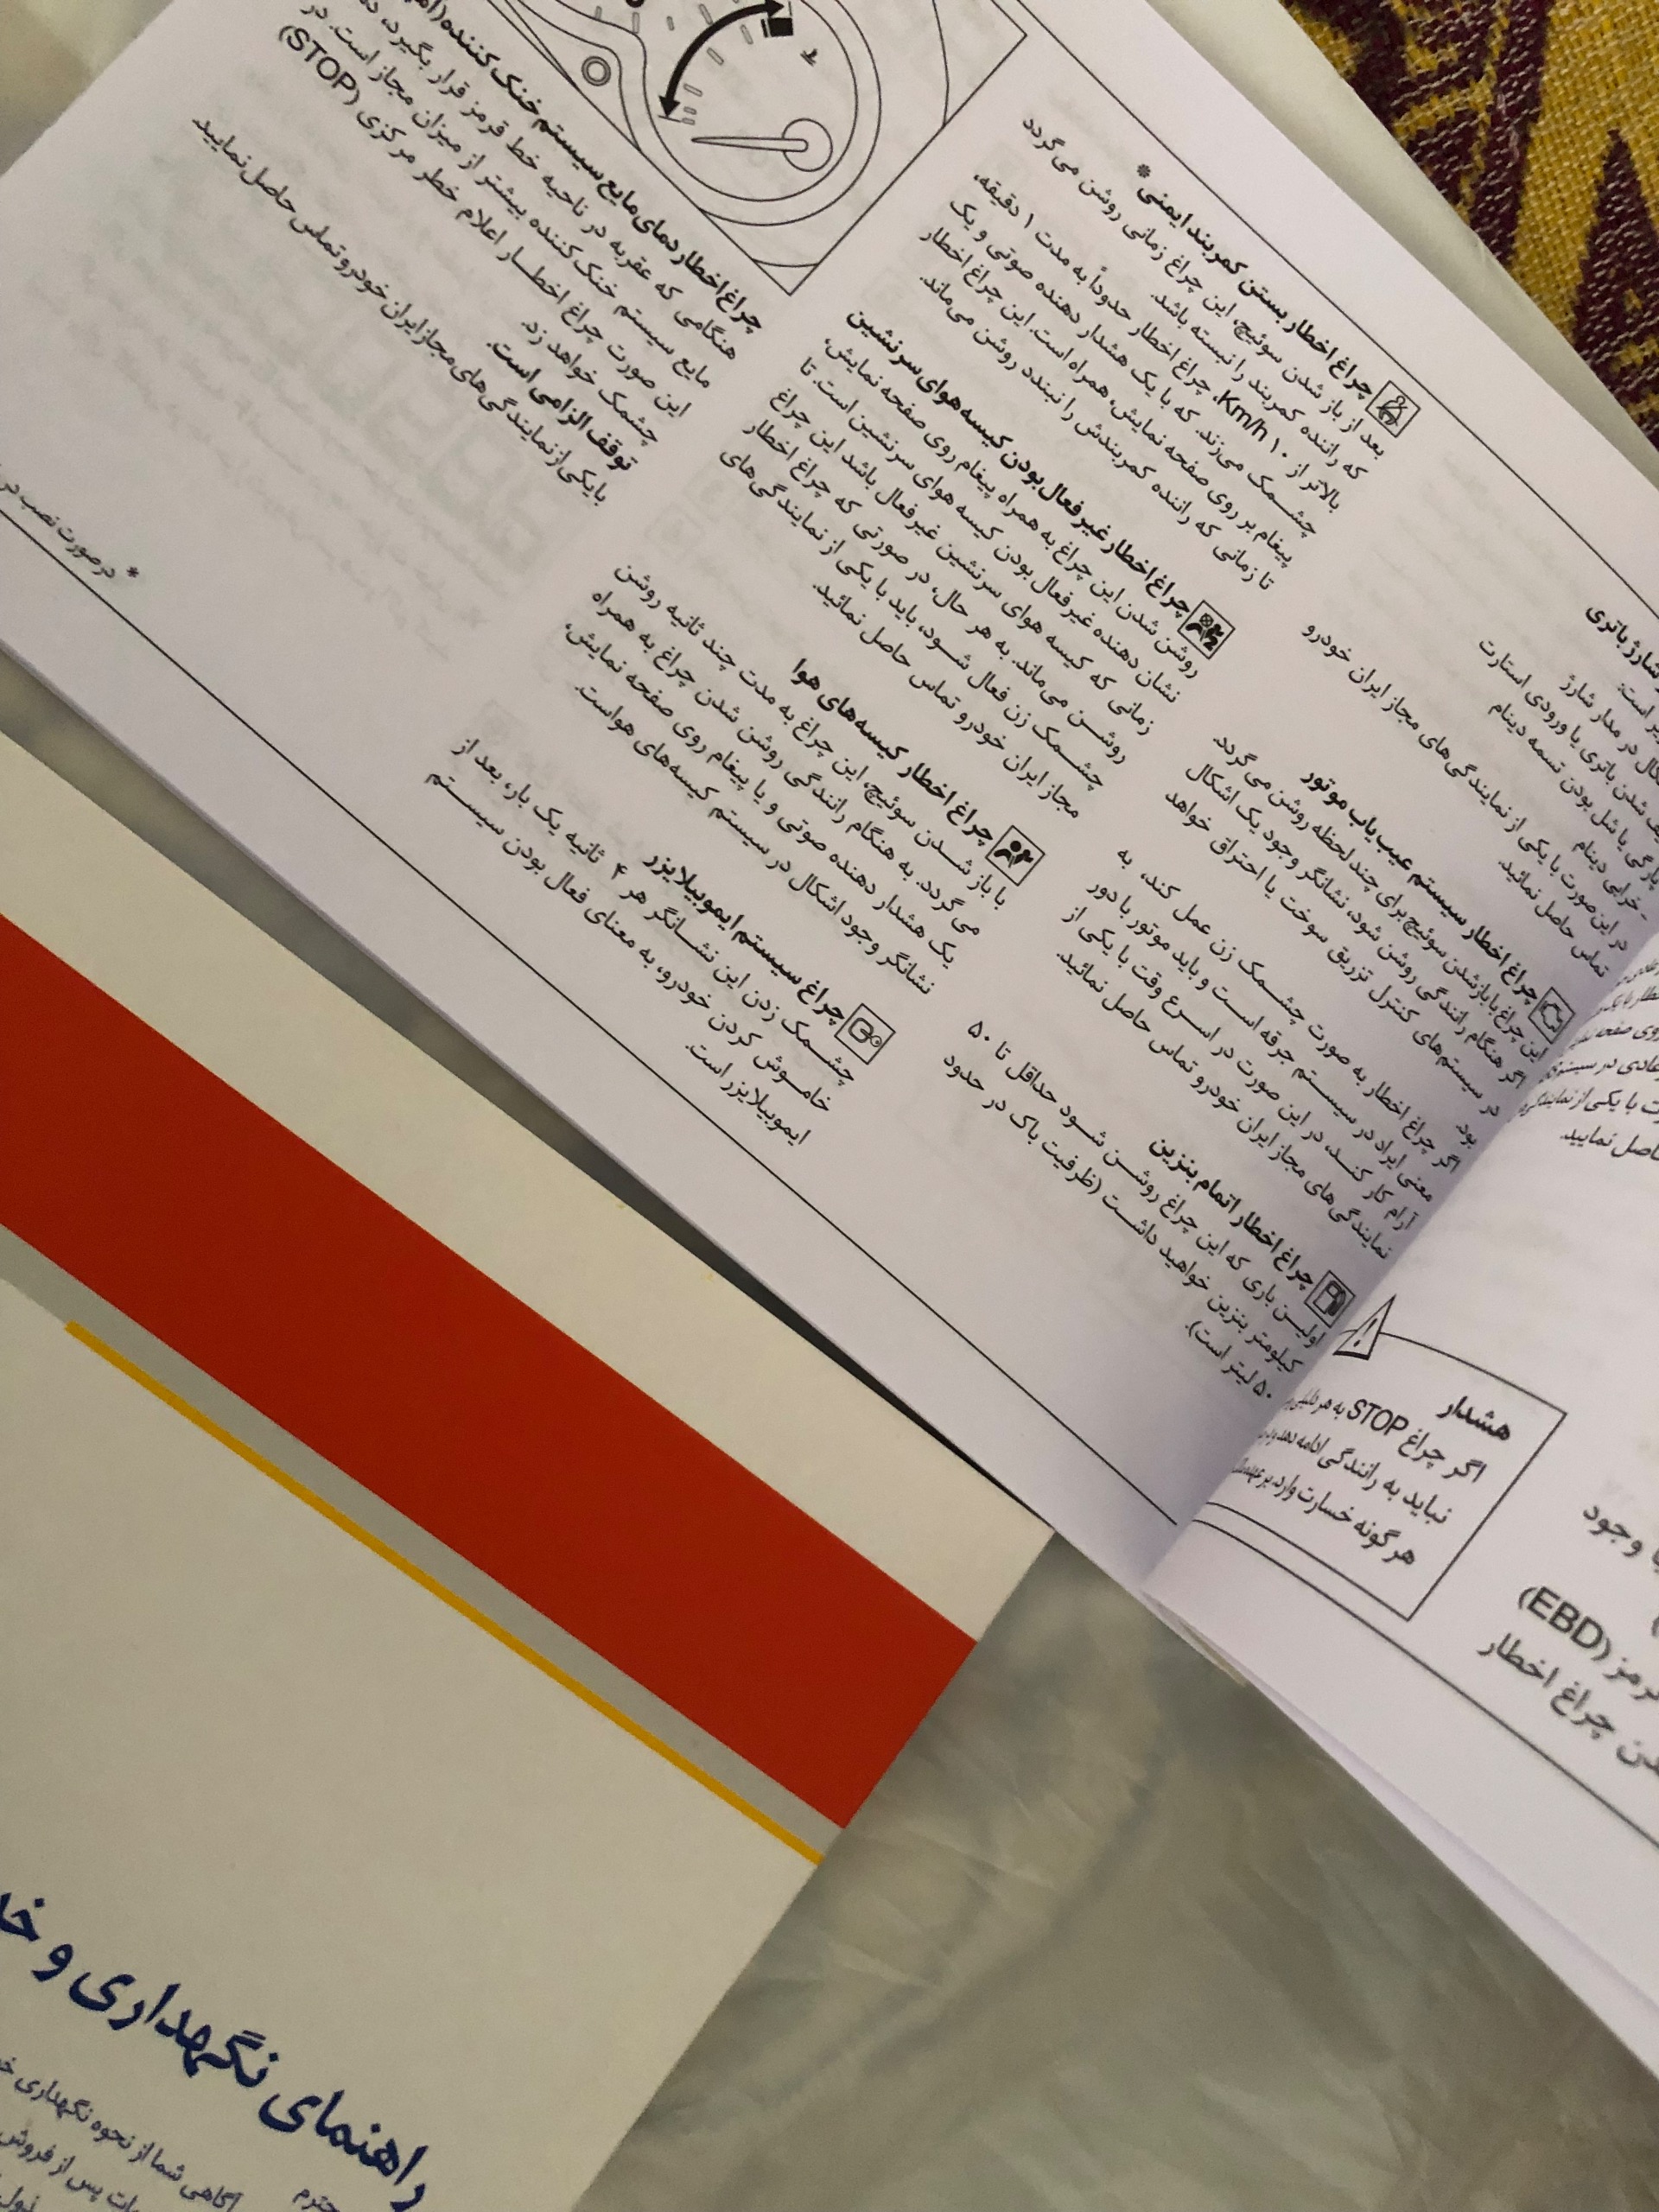 شارژ باتری
است:
در مدار شارژ
شدن باتری یا ورودی استارت
پارگی یا شل بودن تسمه دینام
- خرابی دینام
در این صورت با یکی از نمایندگی های مجاز ایران خودرو
تماس حاصل نمائید.
چراغ اخطار سیستم عیب یاب موتور
این چراغ با باز شدن سوئیچ برای چند لحظه روشن می گردد.
اگر هنگام رانندگی روشن شود، نشانگر وجود یک اشکال
در سیستم های کنترل تزریق سوخت یا احتراق خواهد
بود.
اگر چراغ اخطار به صورت چشمک زن عمل کند، به
معنی ایراد در سیستم جرقه است و باید موتور با دور
آرام کار کند، در این صورت در اسرع وقت با یکی از
نمایندگی های مجاز ایران خودرو تماس حاصل نمائید.
چراغ اخطار اتمام بنزین
اولین باری که این چراغ روشن شود حداقل تا ۵۰
کیلومتر بنزین خواهید داشت (ظرفیت باک در حدود
۵۰ لیتر است).
چراغ اخطار بستن کمربند ایمنی*
بعد از باز شدن سوئیچ، این چراغ زمانی روشن می گردد
که راننده کمربند را نبسته باشد.
بالاتر از ۱۰ Km/h، چراغ اخطار حدوداً به مدت ۱ دقیقه،
چشمک می زند. که با یک هشدار دهنده صوتی و یک
پیغام بر روی صفحه نمایش، همراه است. این چراغ اخطار
تا زمانی که راننده کمربندش را نبندد روشن می ماند.
چراغ اخطار غیر فعال بودن کیسه هوای سرنشین
روشن شدن این چراغ به همراه پیغام روی صفحه نمایش،
نشان دهنده غیرفعال بودن کیسه هوای سرنشین است. تا
زمانی که کیسه هوای سرنشین غیرفعال باشد این چراغ
روشن می ماند. به هر حال، در صورتی که چراغ اخطار
چشمک زن فعال شود، باید با یکی از نمایندگی های
مجاز ایران خودرو تماس حاصل نمائید.
چراغ اخطار کیسه های هوا
با باز شدن سوئیچ، این چراغ به مدت چند ثانیه روشن
می گردد. به هنگام رانندگی روشن شدن چراغ به همراه
یک هشدار دهنده صوتی و یا پیغام روی صفحه نمایش،
نشانگر وجود اشکال در سیستم کیسه های هواست.
چراغ سیستم ایموبیلایزر
چشمک زدن این نشانگر هر ۴ ثانیه یک بار، بعد از
خاموش کردن خودرو، به معنای فعال بودن سیستم
ایموبیلایزر است.
چراغ اخطار دمای مایع سیستم خنک کننده
هنگامی که عقربه در ناحیه خط قرمز قرار بگیرد،
مایع سیستم خنک کننده بیشتر از میزان مجاز است. در
این صورت چراغ اخطار اعلام خطر مرکزی (STOP)
چشمک خواهد زد.
توقف الزامی است.
با یکی از نمایندگی های مجاز ایران خودرو تماس حاصل نمایید
* در صورت نصب در
روی صفحه
با یکی از
حاصل نمایید.
هشدار
اگر چراغ STOP به هر
نباید به رانندگی ادامه
هر گونه خسارت وارد بر
وجود
ترمز (EBD)
چراغ اخطار
راهنمای نگهداری و
آگاهی شما از نحوه نگهداری
پس از فروش